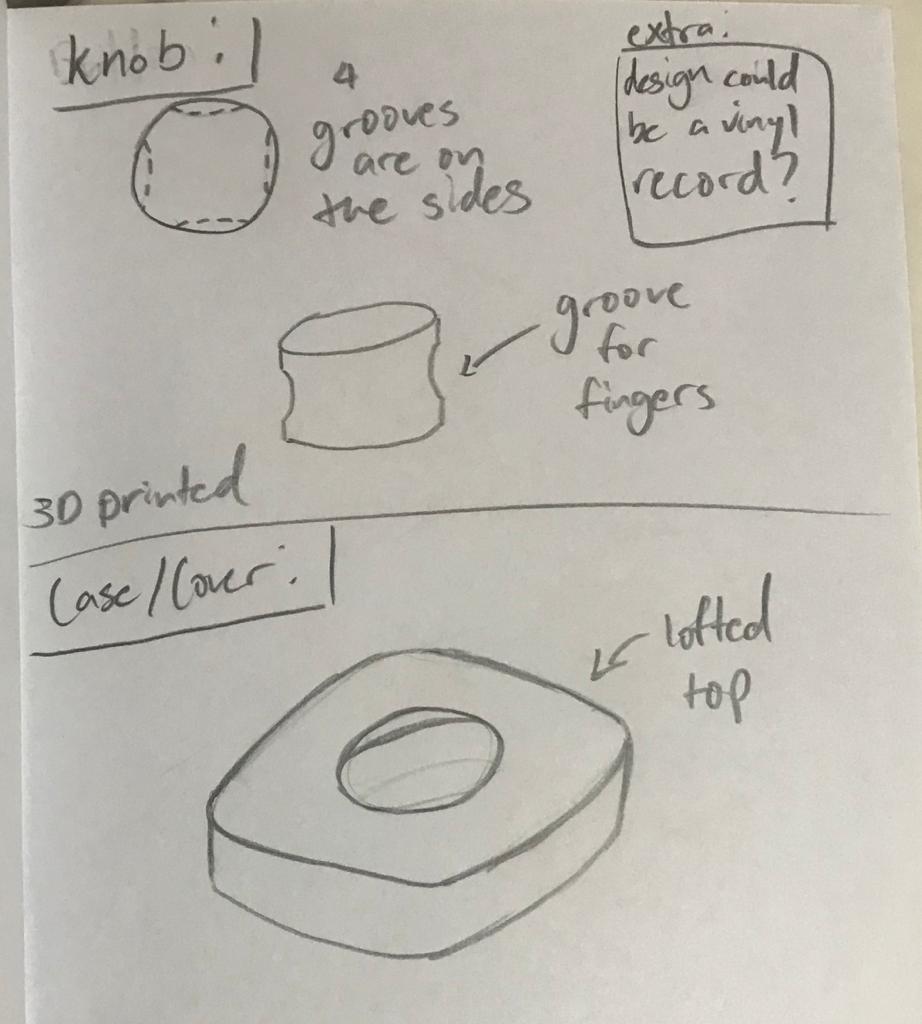 knob:
4
grooves
are on
the sides
extra:
design could
be a vinyl
record?
groove
for
fingers
3D printed
Case/Cover:
lofted
top